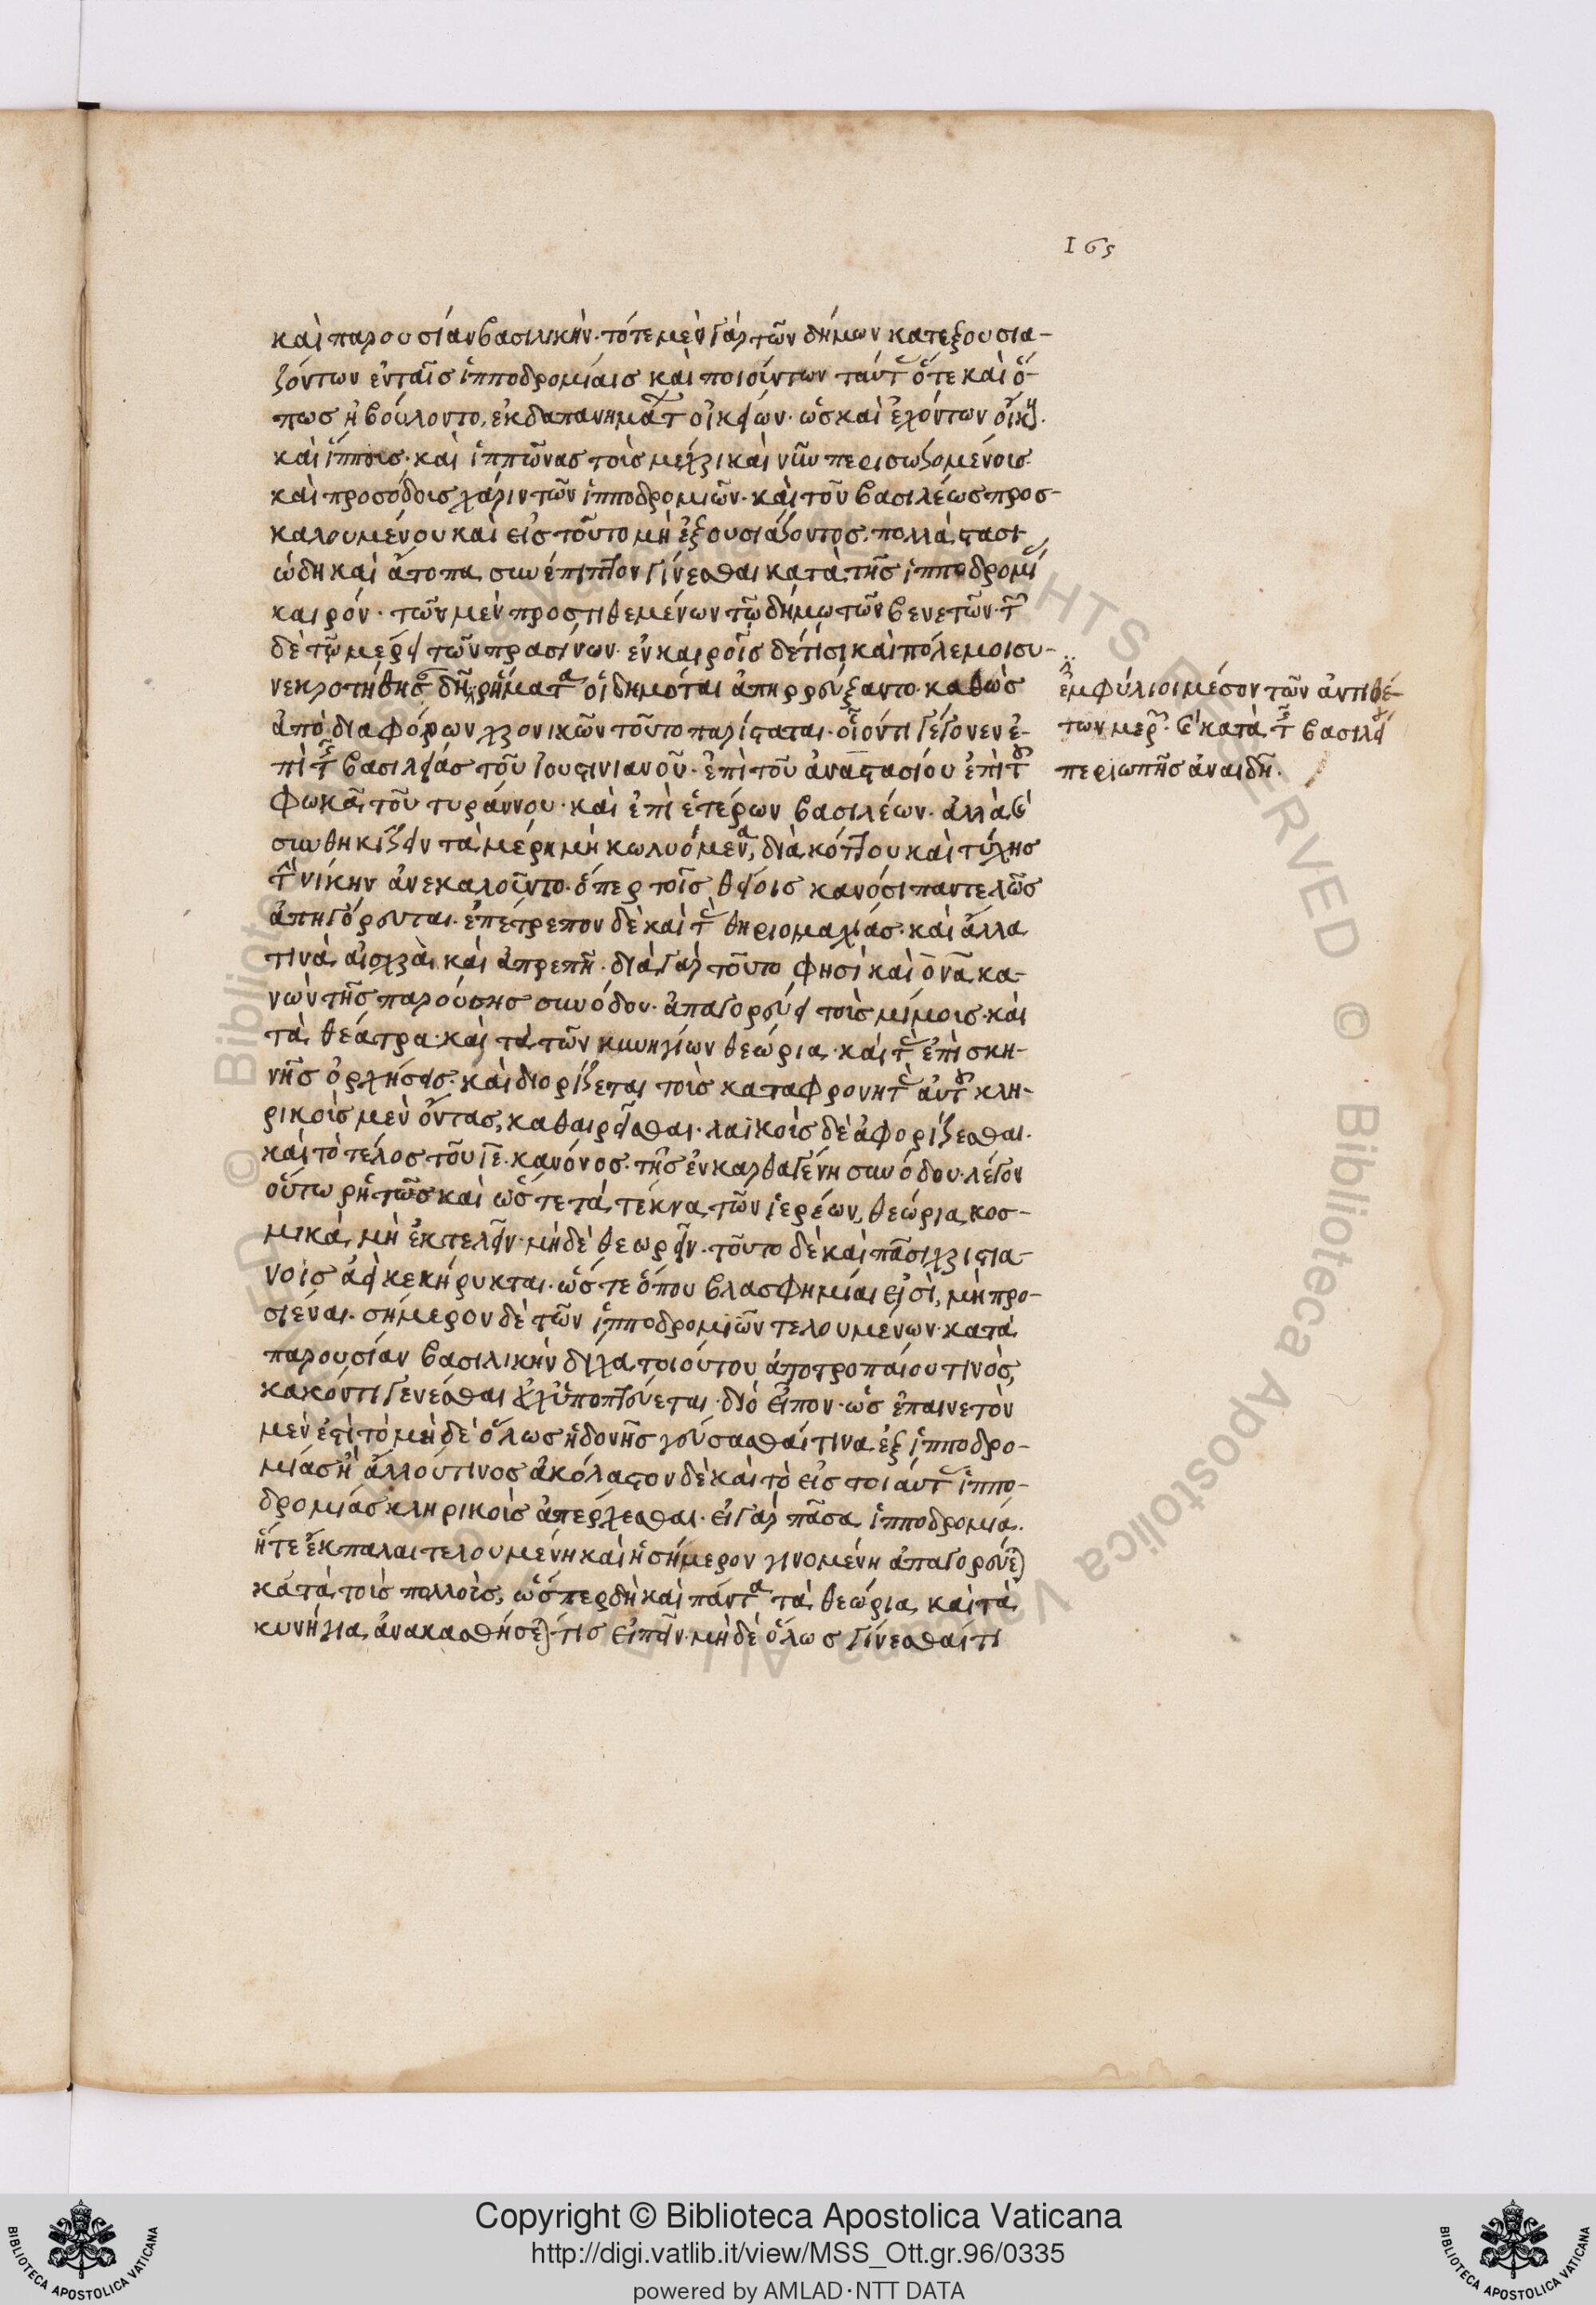 165
καὶ παρουσίαν βασιλικήν· τότε μὲν γὰρ τῶν δήμων κατεξουσια-
ζόντων ἐν ταῖς ἱπποδρομίαις καὶ ποιούντων ταύτ ὅτε καὶ ὅ-
πως ἠβούλοντο, ἐκ δαπανημάτ οἰκείων· ὡς καὶ ἐχόντων οἴκ
καὶ ἵππους· καὶ ἱππῶνας τοὺς μέχρι καὶ νῦν περισωζομένους·
καὶ προσόδους χάριν τῶν ἱπποδρομιῶν· καὶ τοῦ βασιλέως προσ-
καλουμένου καὶ εἰς τοῦτο μὴ ἐξουσιάζοντος· πολλὰ στασι
ώδη καὶ ἄτοπα συνέπιπτον γίνεσθαι κατὰ τῆς ἱπποδρομί
καιρόν· τῶν μὲν προστιθεμένων τῷ δήμῳ τῶν βενετῶν· τ
δὲ τῷ μέρει τῶν πρασίνων· ἐν καιροῖς δέ τισι καὶ πόλεμοι συ-
νεκροτήθησ δῆ ρήματα οἱ δημόται ἀπηρρεύξαντο· καθὼς
ἀπὸ διαφόρων χρονικῶν τοῦτο παρίσταται· οἷόν τι γέγονεν ἐ-
πὶ τῆς βασιλείας τοῦ ἰουστινιανοῦ· ἐπὶ τοῦ ἀναστασίου ἐπὶ τοῦ
φωκᾶ τοῦ τυράννου· καὶ ἐπὶ ἑτέρων βασιλέων· ἀλλὰ καὶ
συνθηκίζειν τὰ μέρη μὴ κωλυόμενα, διὰ κόττου καὶ τύχης
τὴν νίκην ἀνεκαλοῦντο· ὅπερ τοῖς θείοις κανόσι παντελῶς
ἀπηγόρευται· ἐπέτρεπον δὲ καὶ τὰς θηριομαχίας· καὶ ἄλλα
τινὰ αἰσχρὰ καὶ ἀπρεπῆ· διὰ γὰρ τοῦτο φησὶ καὶ ὁ να κα-
νὼν τῆς παρούσης συνόδου· ἀπαγορεύει τοὺς μίμους· καὶ
τὰ θέατρα· καὶ τὰ τῶν κυνηγίων θεώρια· καὶ τὰς ἐπὶ σκη-
νῆς ὀρχήσεις· καὶ διορίζεται τοὺς καταφρονητὰς αὐτοῦ κλη-
ρικοὺς μὲν ὄντας, καθαιρεῖσθαι· λαϊκοὺς δὲ ἀφορίζεσθαι·
καὶ τὸ τέλος τοῦ ιε κανόνος· τῆς ἐν καρθαγένη συνόδου· λέγον
οὕτω ρητῶς καὶ ὥστε τὰ τέκνα τῶν ἱερέων, θεώρια κοσ-
μικὰ μὴ ἐκτελεῖν· μὴ δὲ θεωρεῖν· τοῦτο δὲ καὶ πᾶσι χριστια-
νοῖς ἀεὶ κεκήρυκται· ὥστε ὅπου βλασφημίαι εἰσὶ, μὴ προ-
σιέναι· σήμερον δὲ τῶν ἱπποδρομιῶν τελουμένων κατὰ
παρουσίαν βασιλικὴν δίχα τοιούτου ἀποτροπαίου τινὸς,
κακόν τι γενέσθαι οὐχ ὑποπτεύεται· διὸ εἶπον· ὡς ἐπαινετὸν
μέν ἐστι τὸ μὴ δὲ ὅλως ἡδονῆς γεύσασθαί τινα ἐξ ἱπποδρο-
μίας ἢ ἄλλου τινος ἀκόλαστον δὲ καὶ τὸ εἰς τοιαύτ ἱππο-
δρομίας κληρικοὺς ἀπέρχεσθαι· εἰ γὰρ πᾶσα ἱπποδρομία·
ἥτε ἔκπαλαι τελουμένη καὶ ἡ σήμερον γινομένη ἀπαγορεύε
κατὰ τοὺς πολλοὺς, ὥσπερ δὴ καὶ πάντα τὰ θεώρια καὶ τὰ
κυνήγια ἀνακασθήσε τις εἰπεῖν· μὴ δὲ ὅλως γίνεσθαί τι
ἐμφύλιοι μέσον τῶν ἀντιθέ-
των μερ καὶ κατὰ τῆς βασιλεί
περιωπῆς ἀναιδῆ·